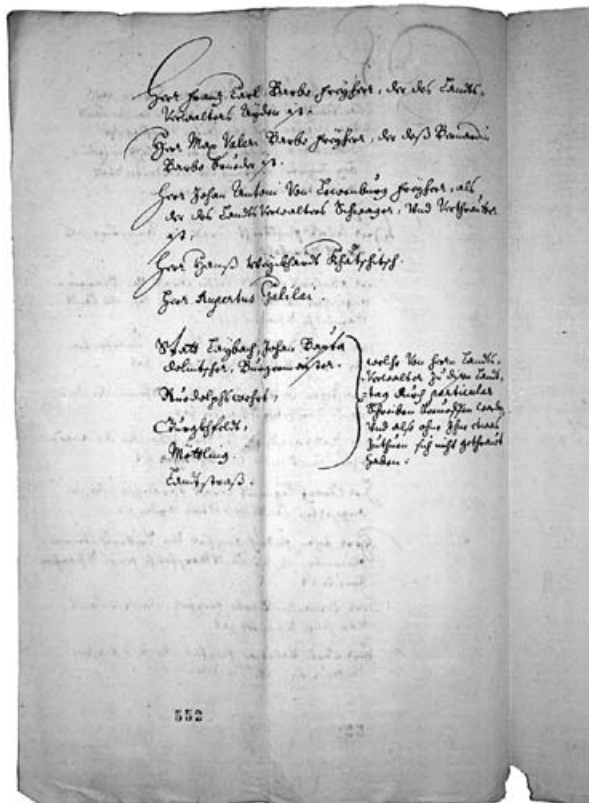 Herr Frantz Carl Barbo Freyherr, der des Landts,
Verwalters Ayden ist.
Herr Max Valeri Barbo Freyherr, der deß Bernardin
Barbo Brueder ist.
Herr Johan Antoni Von Lewenburg Freyherr, als
der des Landts Verwalters Schwager, Und Verthrauter
ist,
Herr Hannß Weykhardt Khatschitsch
Herr Rupertus Galilai.
Statt Laybach, Johan Bapta
Dolnitscher, Burgermaister.
Ruedolphswehrt,
Gurgkhfeldt,
Möttling.
Landtstraß.
welche Von Herrn Landts,
Verwalter zu disem Landt,
tag durch particular
Schreiben
Und also ohne Ihne etwas
zuthuen sich nicht gethraut
haben.
552